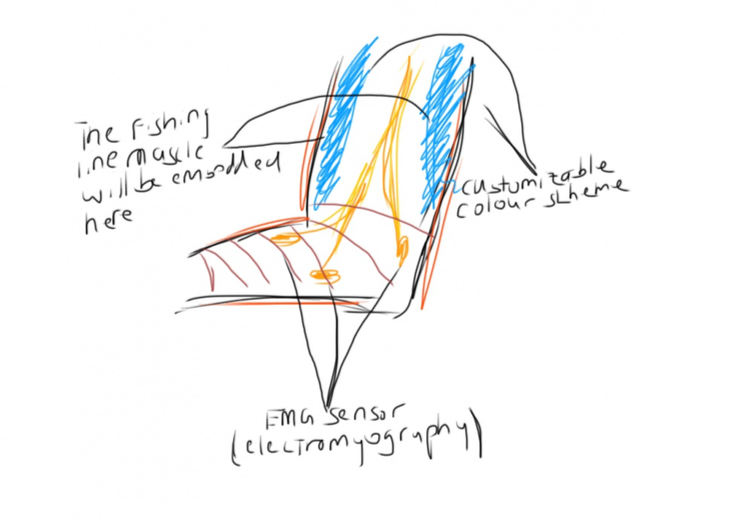 The Fishing
line muscle
will be embodded
here
Custumizable
colour scheme
EMG sensor
(electromyography)